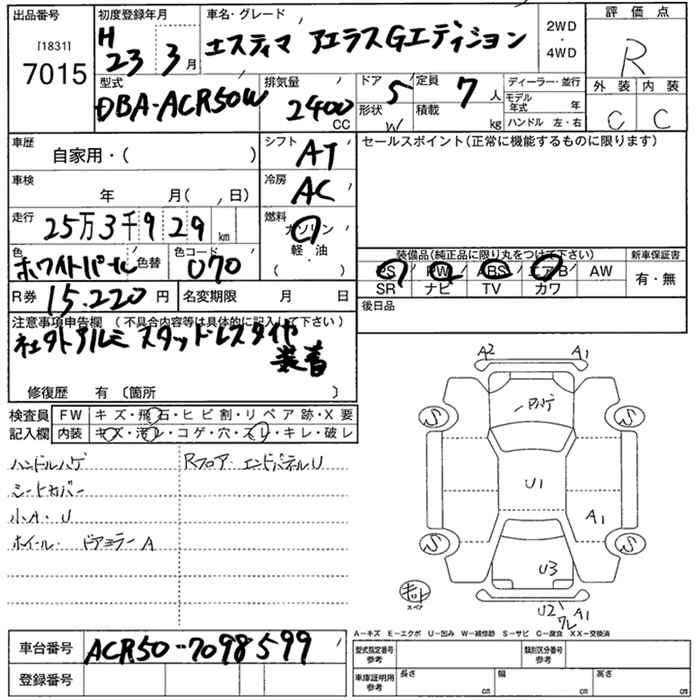 出品番号 初度登録年月 車名・グレード 2WD・4WD 評価点
[1831] 7015 H 23 3月 エスティマ アエラスGエディション R
型式 排気量 ドア 定員 ディーラー・並行 外装 内装
DBA-ACR50W 2400 CC 5 7人 モデル年式 年 C C
形状 W 積載 kg ハンドル 左・右
車歴 自家用・( ) シフト AT セールスポイント(正常に機能するものに限ります)
車検 年 月( , 日) 冷房 AC
走行 25万3千929km 燃料 ガソリン 軽・油 ( )
色 ホワイトパール 色替 色コード 070 装備品(純正品に限り丸をつけて下さい) 新車保証書
PS PW ABS エアB AW 有・無
SR ナビ TV カワ
R券 15.220円 名変期限 月 日 後日品
注意事項申告欄 (不具合内容等は具体的に記入して下さい)
社外アルミ スタッドレスタイヤ
装着
修復歴 有 〔箇所 〕
検査員 FW キズ・飛石・ヒビ割・リペア跡・X要
記入欄 内装 キズ・汚レ・コゲ・穴・スレ・キレ・破レ
ハンドルハゲ Rフロア・エンドパネルU
シートカバー
小A・U
ホイール・ドアミラーA
A2 A1
S S
U1
A1
S S
U3
スペア
U2 ワレ A1
A-キズ E-エクボ U-凹み W-補修跡 S-サビ C-腐食 XX-交換済
車台番号 ACR50-7098599 型式指定番号 参考 類別区分番号 参考
登録番号 車庫証明用 参考 長さ cm 幅 cm 高さ cm